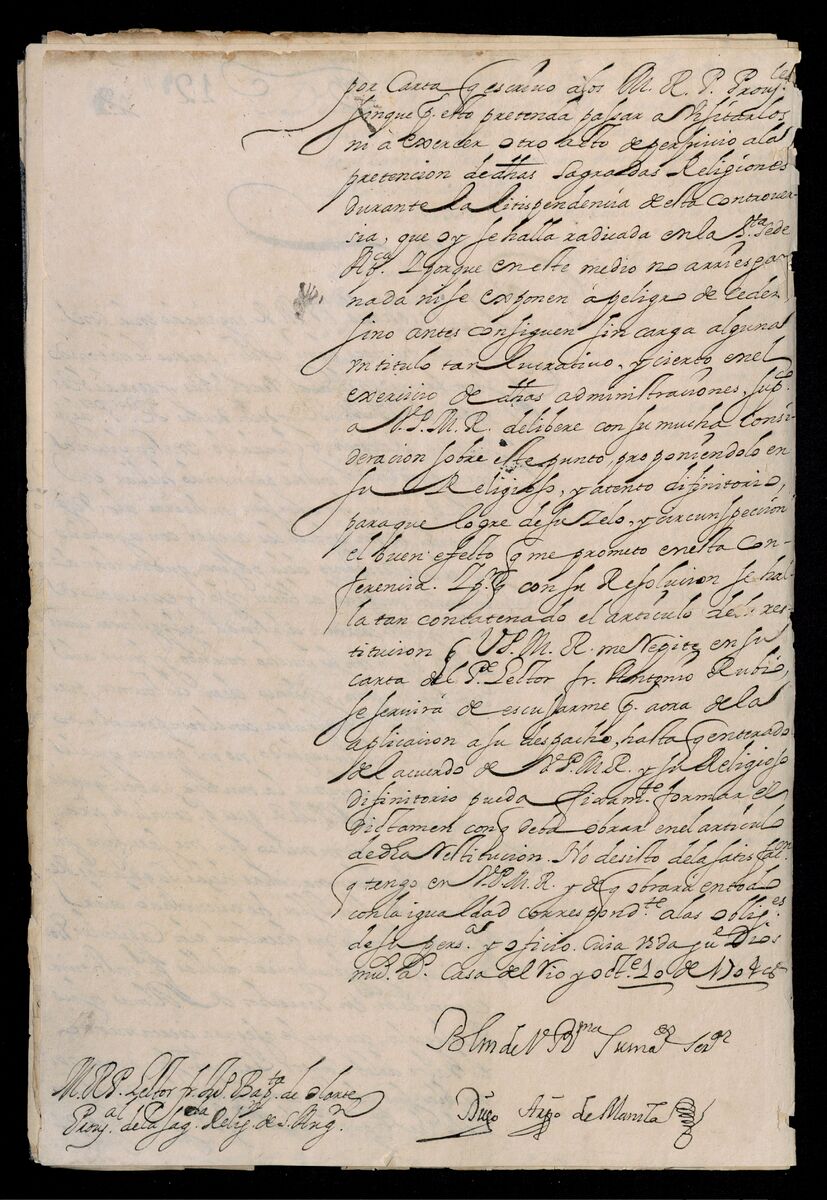 por Carta q escrivo a los M. R. P. Prov.les
sin que p. esto pretenda passar a Visitarlos
ni à exercer otro acto de perjuicio a la
pretencion de dhas Sagradas Religiones
durante la litispendencia de esta controver-
sia, que oy se halla radicada en la S.ta Sede
Y porque en este medio no arriesgan
nada ni se exponen à peligro de ceder,
sino antes consiguen sin carga alguna
vn titulo tan lucrativo, y cierto en el
exercicio de dhas administraciones, sup.co
a V.P.M.R. delibere con su mucha consi-
deracion sobre este punto, proponiendolo en
su Religioso, y atento difinitorio,
para que logre de su zelo, y circunspeccion
el buen efecto q me prometo en esta Con-
ferencia. Y p.r q con su Resolucion se hal-
la tan concatenado el articulo de la res-
titucion q V.P.M.R. me en su
carta del P.e Lector fr. Antonio Rubio,
se servirà de escusarme p. aora de la
aplicacion a su despacho, hasta q enterado
del acuerdo de V.P.M.R. y su Religioso
difinitorio pueda formar el
dictamen con q deva obrar en el articulo
de dha Restitucion. No desisto de la satisfac.on
q tengo en V.P.M.R. y de q obrarà en todo
con la igualdad correspond.te a las oblig.es
de su pers.a y oficio. Cuia vida gu.e Dios
m.s a.s Casa del Rio y oct.e 10 de 1704
Blm de V. R.ma Su ma.or ser.or
Diego Arpo de Manila
M.R.P. Lector fr. Jph Bap.ta de Olarte
Prov.al de la Sag.da Relig.n de S. Aug.n